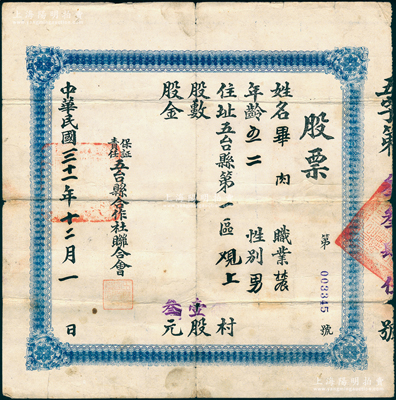 股票
第 003345 號
姓名 畢 肉 職業 農
年齡 五二 性別 男
住址 五台縣第一區 观上 村
股數 壹股
股金 叁元
保証責任五台縣合作社聯合會
中華民國三十一年十二月一日
五字第
號